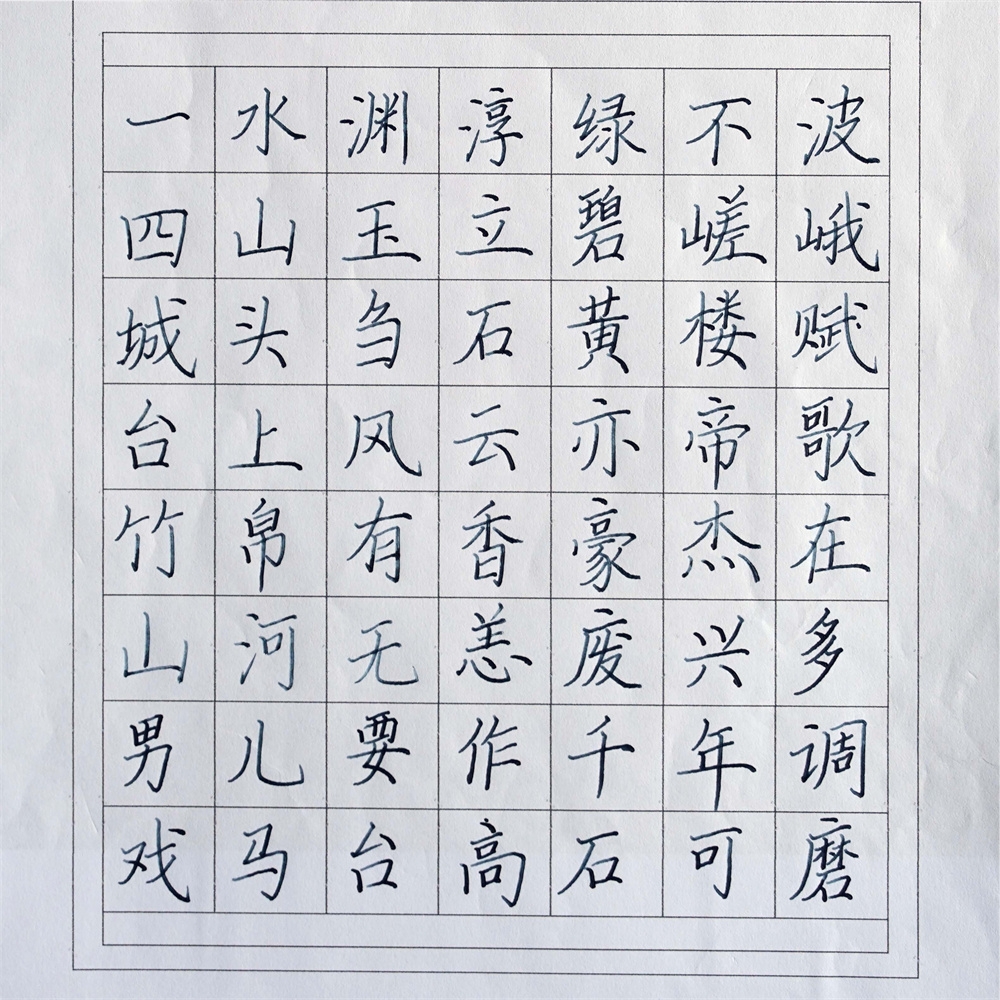 一水渊淳绿不波
四山玉立碧嵯峨
城头刍石黄楼赋
台上风云亦帝歌
竹帛有香豪杰在
山河无恙废兴多
男儿要作千年调
戏马台高石可磨